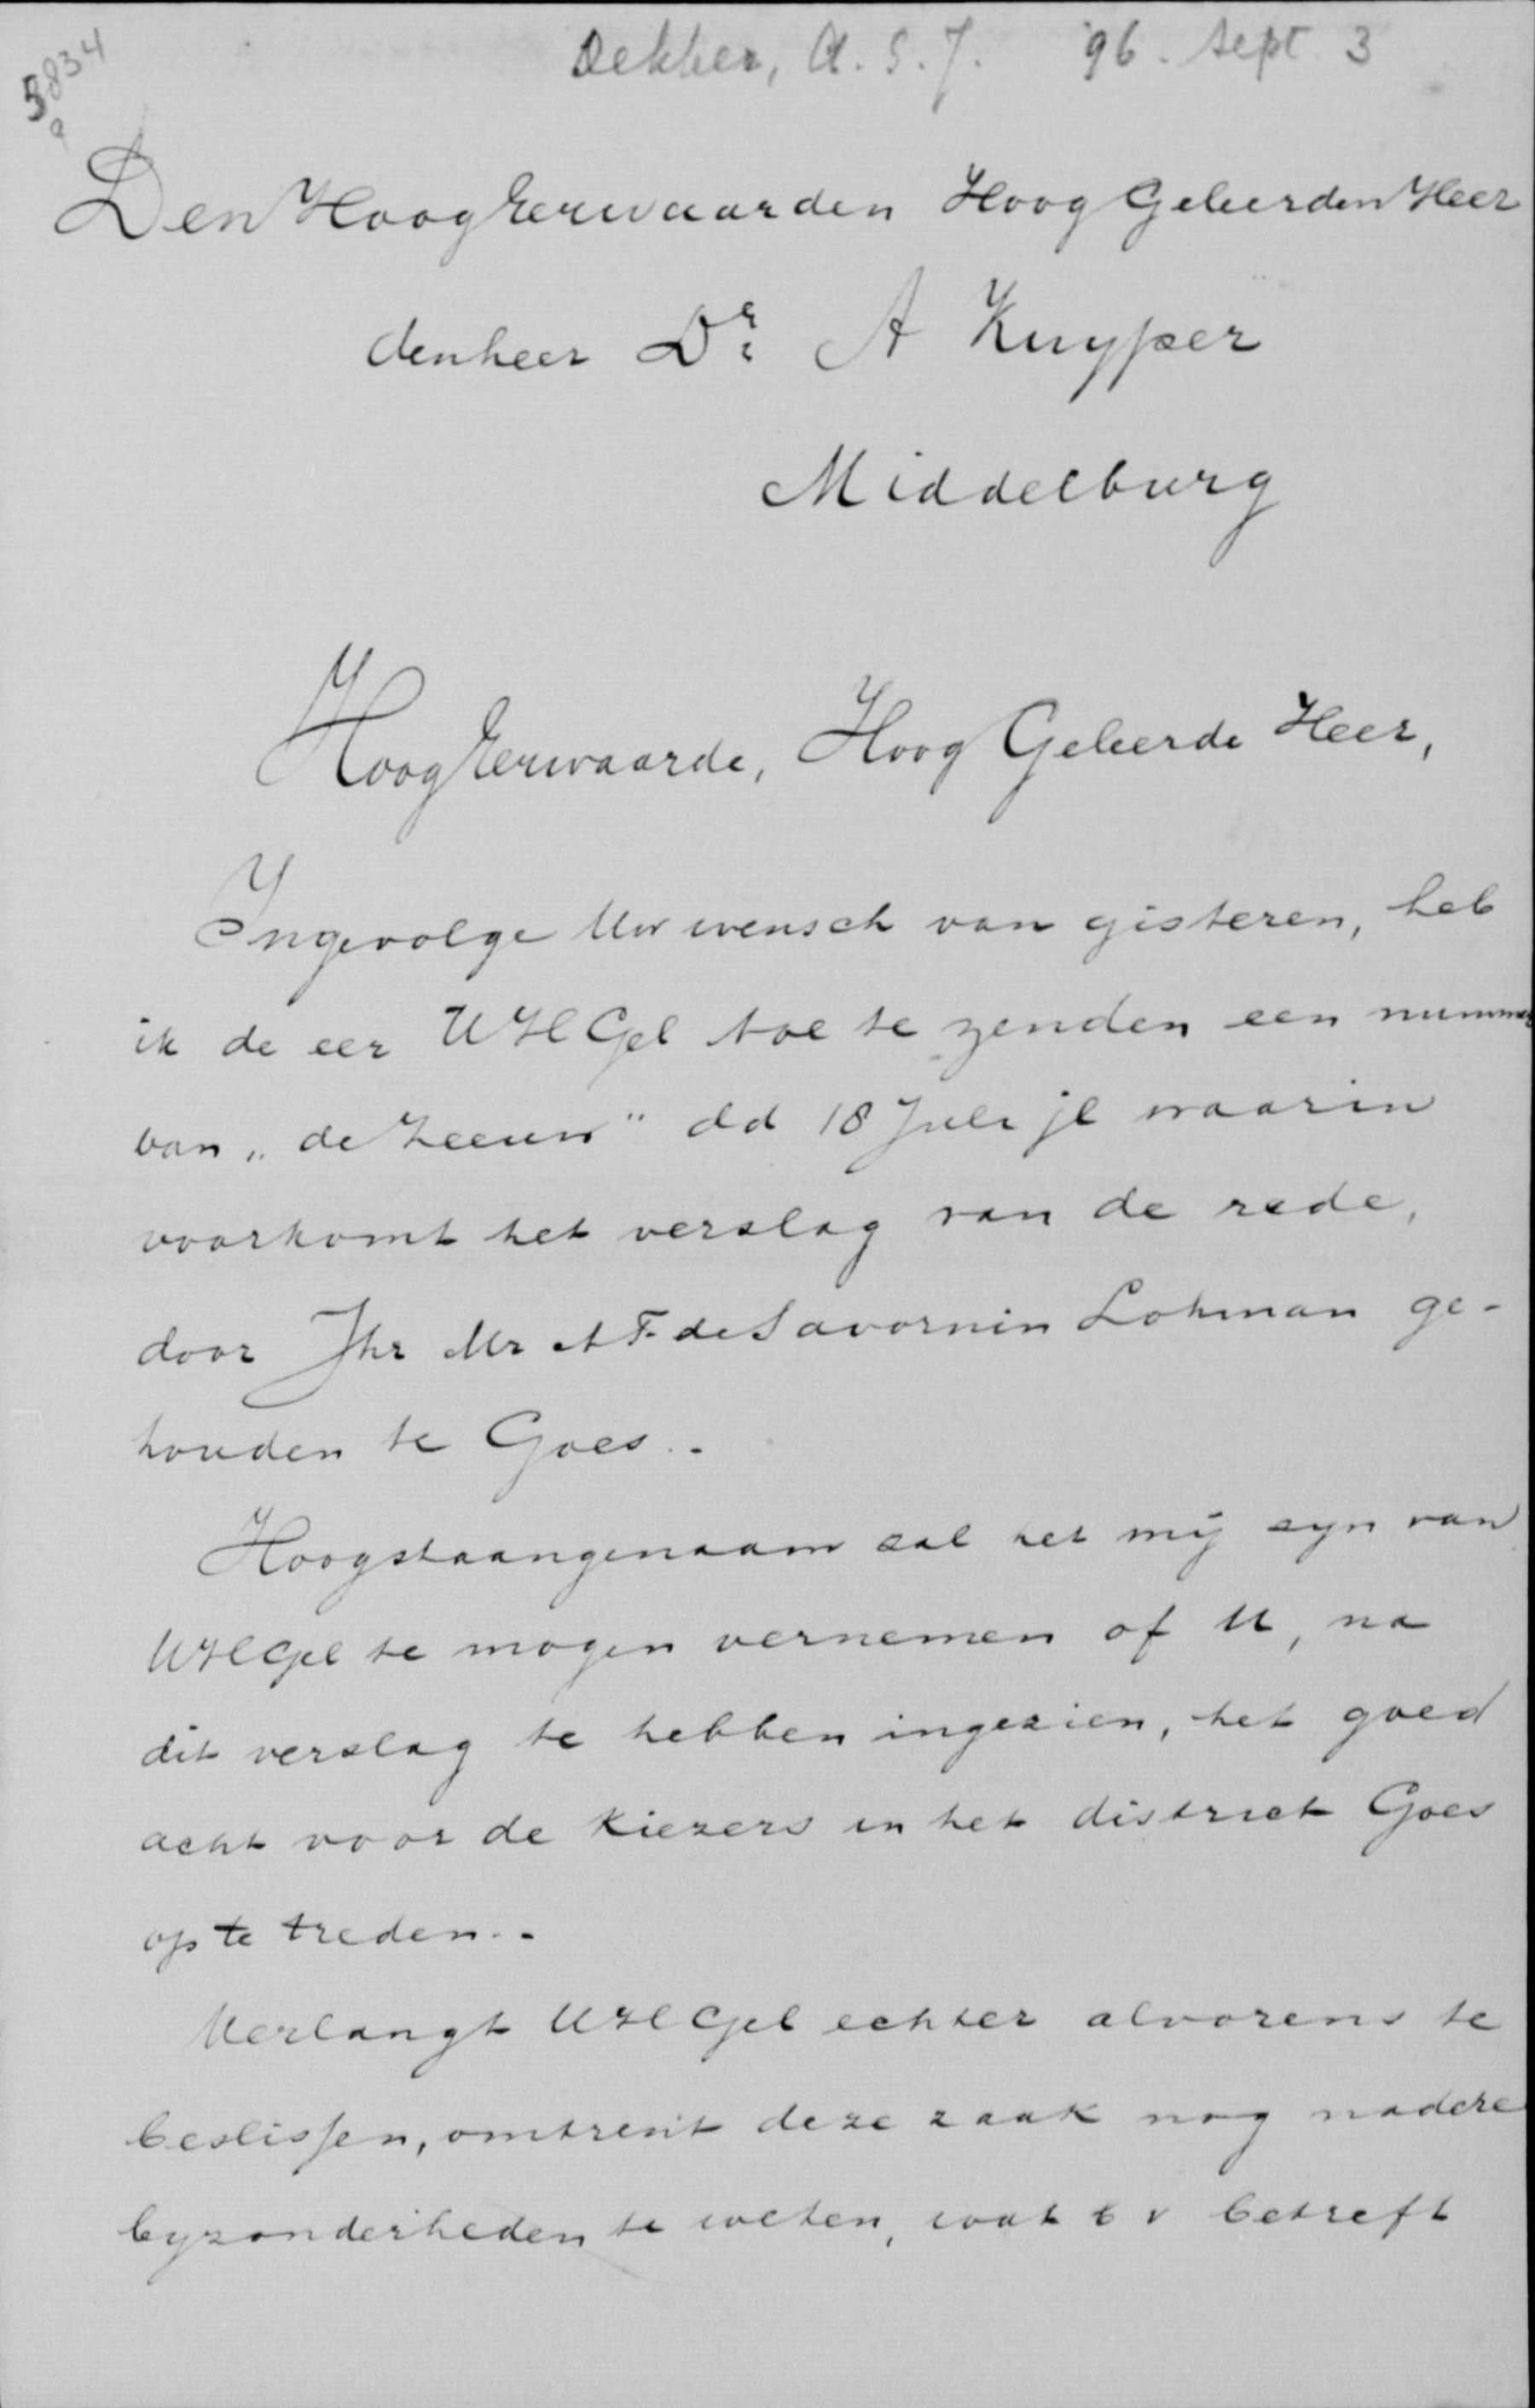 5834
a
Dekker, A. S. J. '96. Sept 3
Den HoogEerwaarden Hoog Geleerden Heer
denheer Dr. A Kuyper
Middelburg
HoogEerwaarde, Hoog Geleerde Heer,
Ingevolge Uw wensch van gisteren, heb
ik de eer UHGel toe te zenden een nummer
van „de Zeeuw" dd 18 Juli jl waarin
voorkomt het verslag van de rede,
door Jhr Mr AF de Savornin Lohman ge-
houden te Goes.-
Hoogstaangenaam zal het mij zyn van
UHGel te mogen vernemen of U, na
dit verslag te hebben ingezien, het goed
acht voor de Kiezers in het district Goes
op te treden.-
Verlangt UHGel echter alvorens te
beslissen, omtrent deze zaak nog nadere
byzonderheden te weten, wat b v betreft